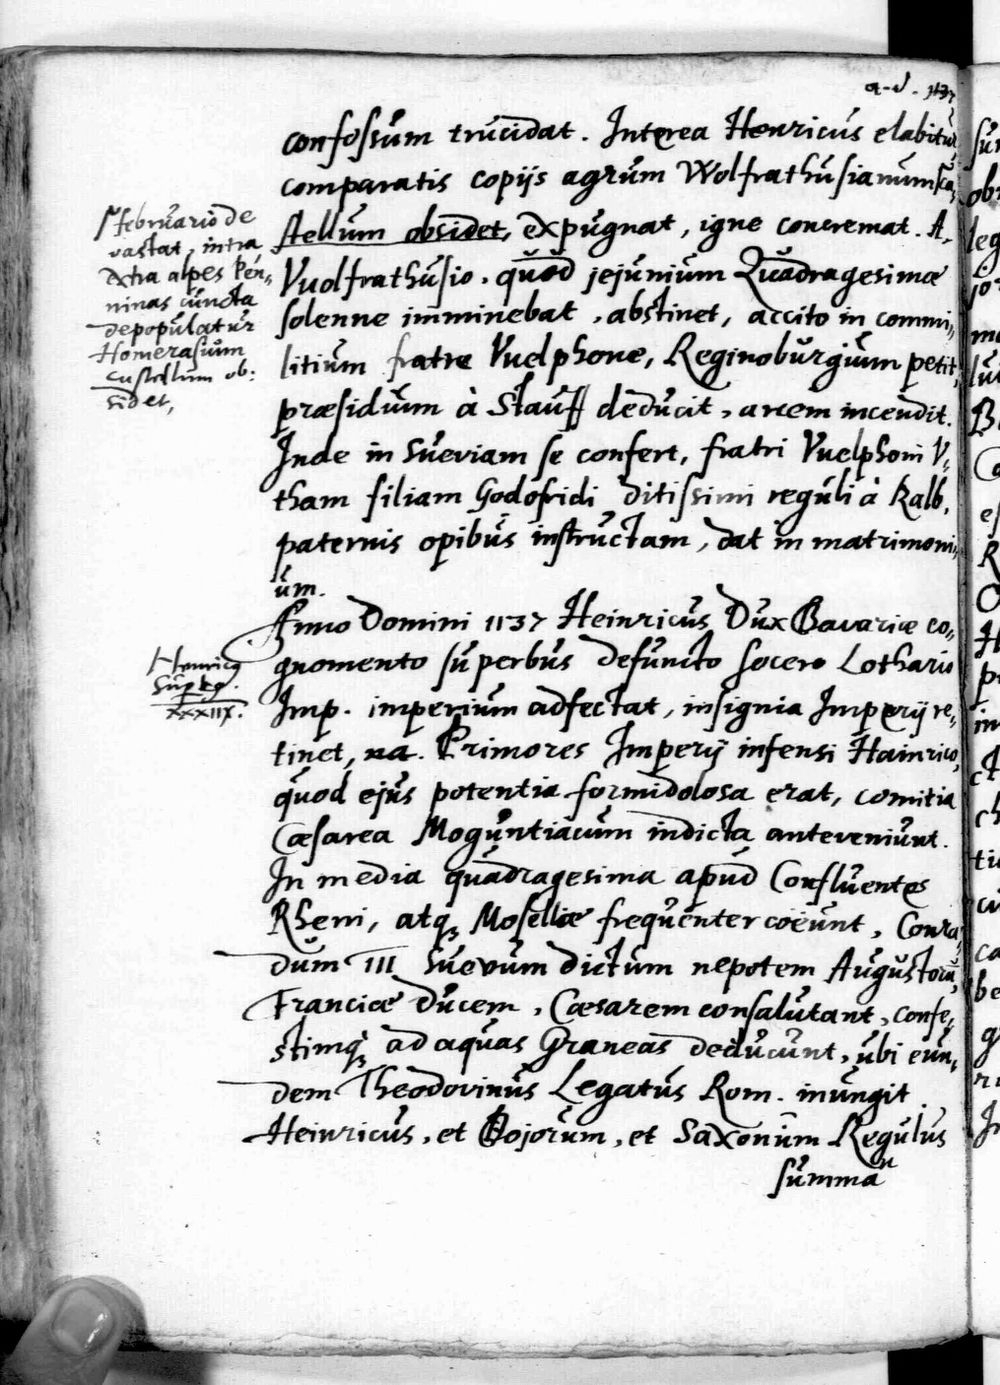 a-d. 1137
confossum trucidat. Interea Henricus elabitur
comparatis copijs agrum Wolfrathusianum ca,
stellum obsidet, expugnat, igne concremat. A,
Vuolfrathusio, quod jejunium Quadragesimæ
solenne imminebat, abstinet, accito in commi,
litium fratre Vuelphone, Reginoburgium petit,
præsidium à Stauff deducit, arcem incendit.
Inde in Sueviam se confert, fratri Vuelphoni V,
tham filiam Godofridi ditissimi reguli à Kalb,
paternis opibus instructam, dat in matrimoni,
um.
Anno Domini 1137 Heinricus Dux Bavariæ co,
gnomento superbus defuncto socero Lothario
Imp. imperium adfectat, insignia Imperij re,
tinet, na. Primores Imperij infensi Hainrico,
quod ejus potentia formidolosa erat, comitia
Cæsarea Moguntiacum indicta anteveniunt.
In media quadragesima apud Confluentes
Rheni, atq; Mosellæ frequenter coëunt, Conra,
dum III Suevum dictum nepotem Augustorū,
Franciæ Ducem, Cæsarem consalutant, confe,
stimq; ad aquas Graneas deducunt, ubi eun,
dem Theodovinus Legatus Rom. inungit.
Heinricus, et Bojorum, et Saxonum Regulus
summa
februario de
vastat, intra
extra alpes Pen,
ninas cuncta
depopulatur
Homerasium
castellum ob:
sidet,
Henricq
Sup bq.
XXXIIX.